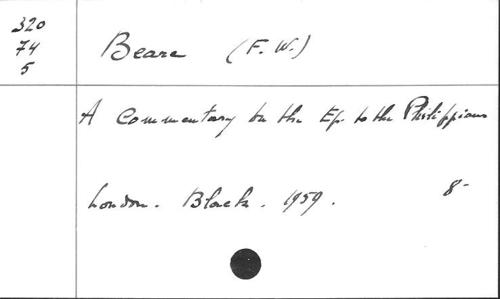 320
74
5
Beare (F. W.)
A Commentary on the Ep. to the Philippians
London. Black. 1959. 8-